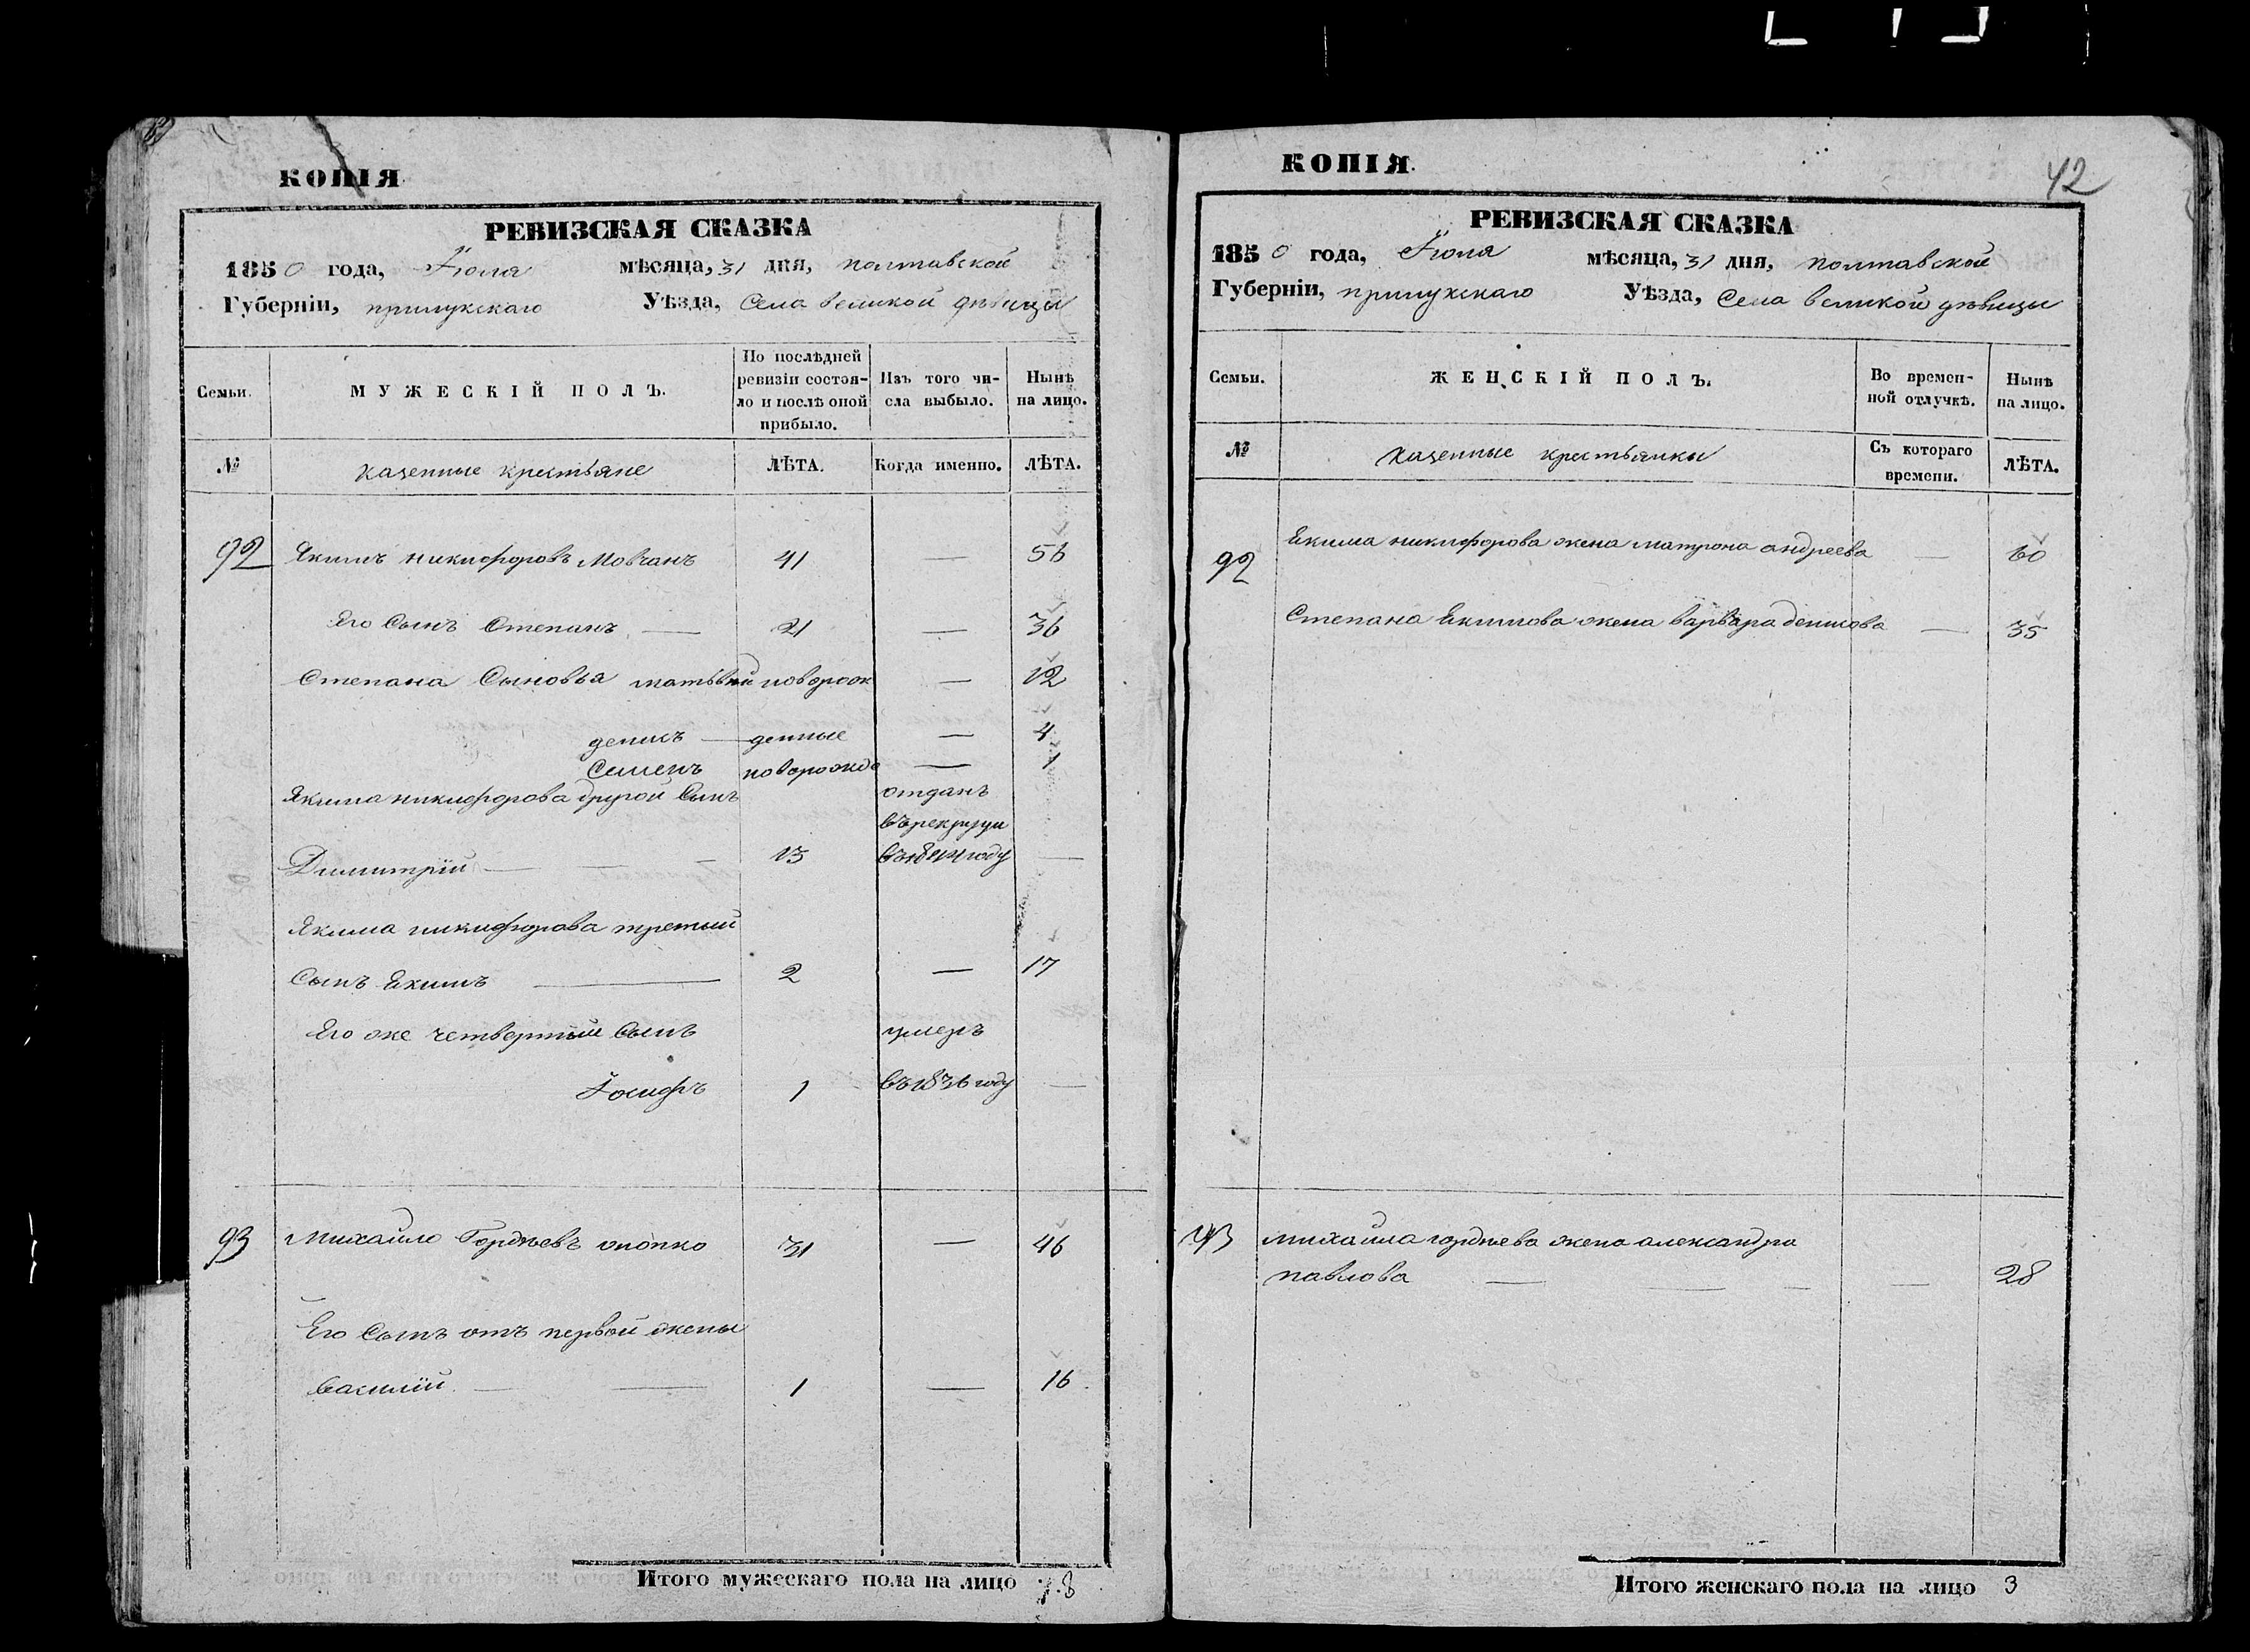 КОПІЯ
РЕВИЗСКАЯ СКАЗКА
1850 года, Іюля мѣсяца, 31 дня, полтавской
Губерніи, прилукскаго Уѣзда, Села великой дѣвицы
Семьи. МУЖЕСКІЙ ПОЛЪ. По послѣдней ревизіи состоя-ло и послѣ оной прибыло. Изъ того чи-сла выбыло. Нынѣ на лицо.
№ казенные крестьяне ЛѢТА. Когда именно. ЛѢТА.
92 Якимъ никифоровъ Мовчанъ 41 — 56
Его Сынъ Степанъ — 21 — 36
Степана Сыновья матвѣй новорож — 12
денисъ — денные — 4
Семенъ новорожде — 1
Якима никифорова другой Сынъ отданъ
въ рекруты
Димитрій — — — 13 въ 1844 году —
Якима никифорова третий
Сынъ Якимъ — 2 — 17
Его же четвертый Сынъ умеръ
Іосифъ 1 въ 1836 году —
93 Михайло Гордѣевъ 31 — 46
Его Сынъ отъ первой жены
василій — — 1 — 16
Итого мужескаго пола на лицо 7.8
КОПІЯ.
42
РЕВИЗСКАЯ СКАЗКА
1850 года, Іюля мѣсяца, 31 дня, полтавской
Губерніи, прилукскаго Уѣзда, Села великой дѣвицы
Семьи. ЖЕНСКІЙ ПОЛЪ. Во времен-ной отлучкѣ. Нынѣ на лицо.
№ казенные крестьянки Съ котораго времени. ЛѢТА.
92 Якима никифорова жена матрона андреева — 60
Степана Якимова жена варвара денисова — 35
93 михайла гордѣева жена александра
павлова — — — — 28
Итого женскаго пола на лицо 3